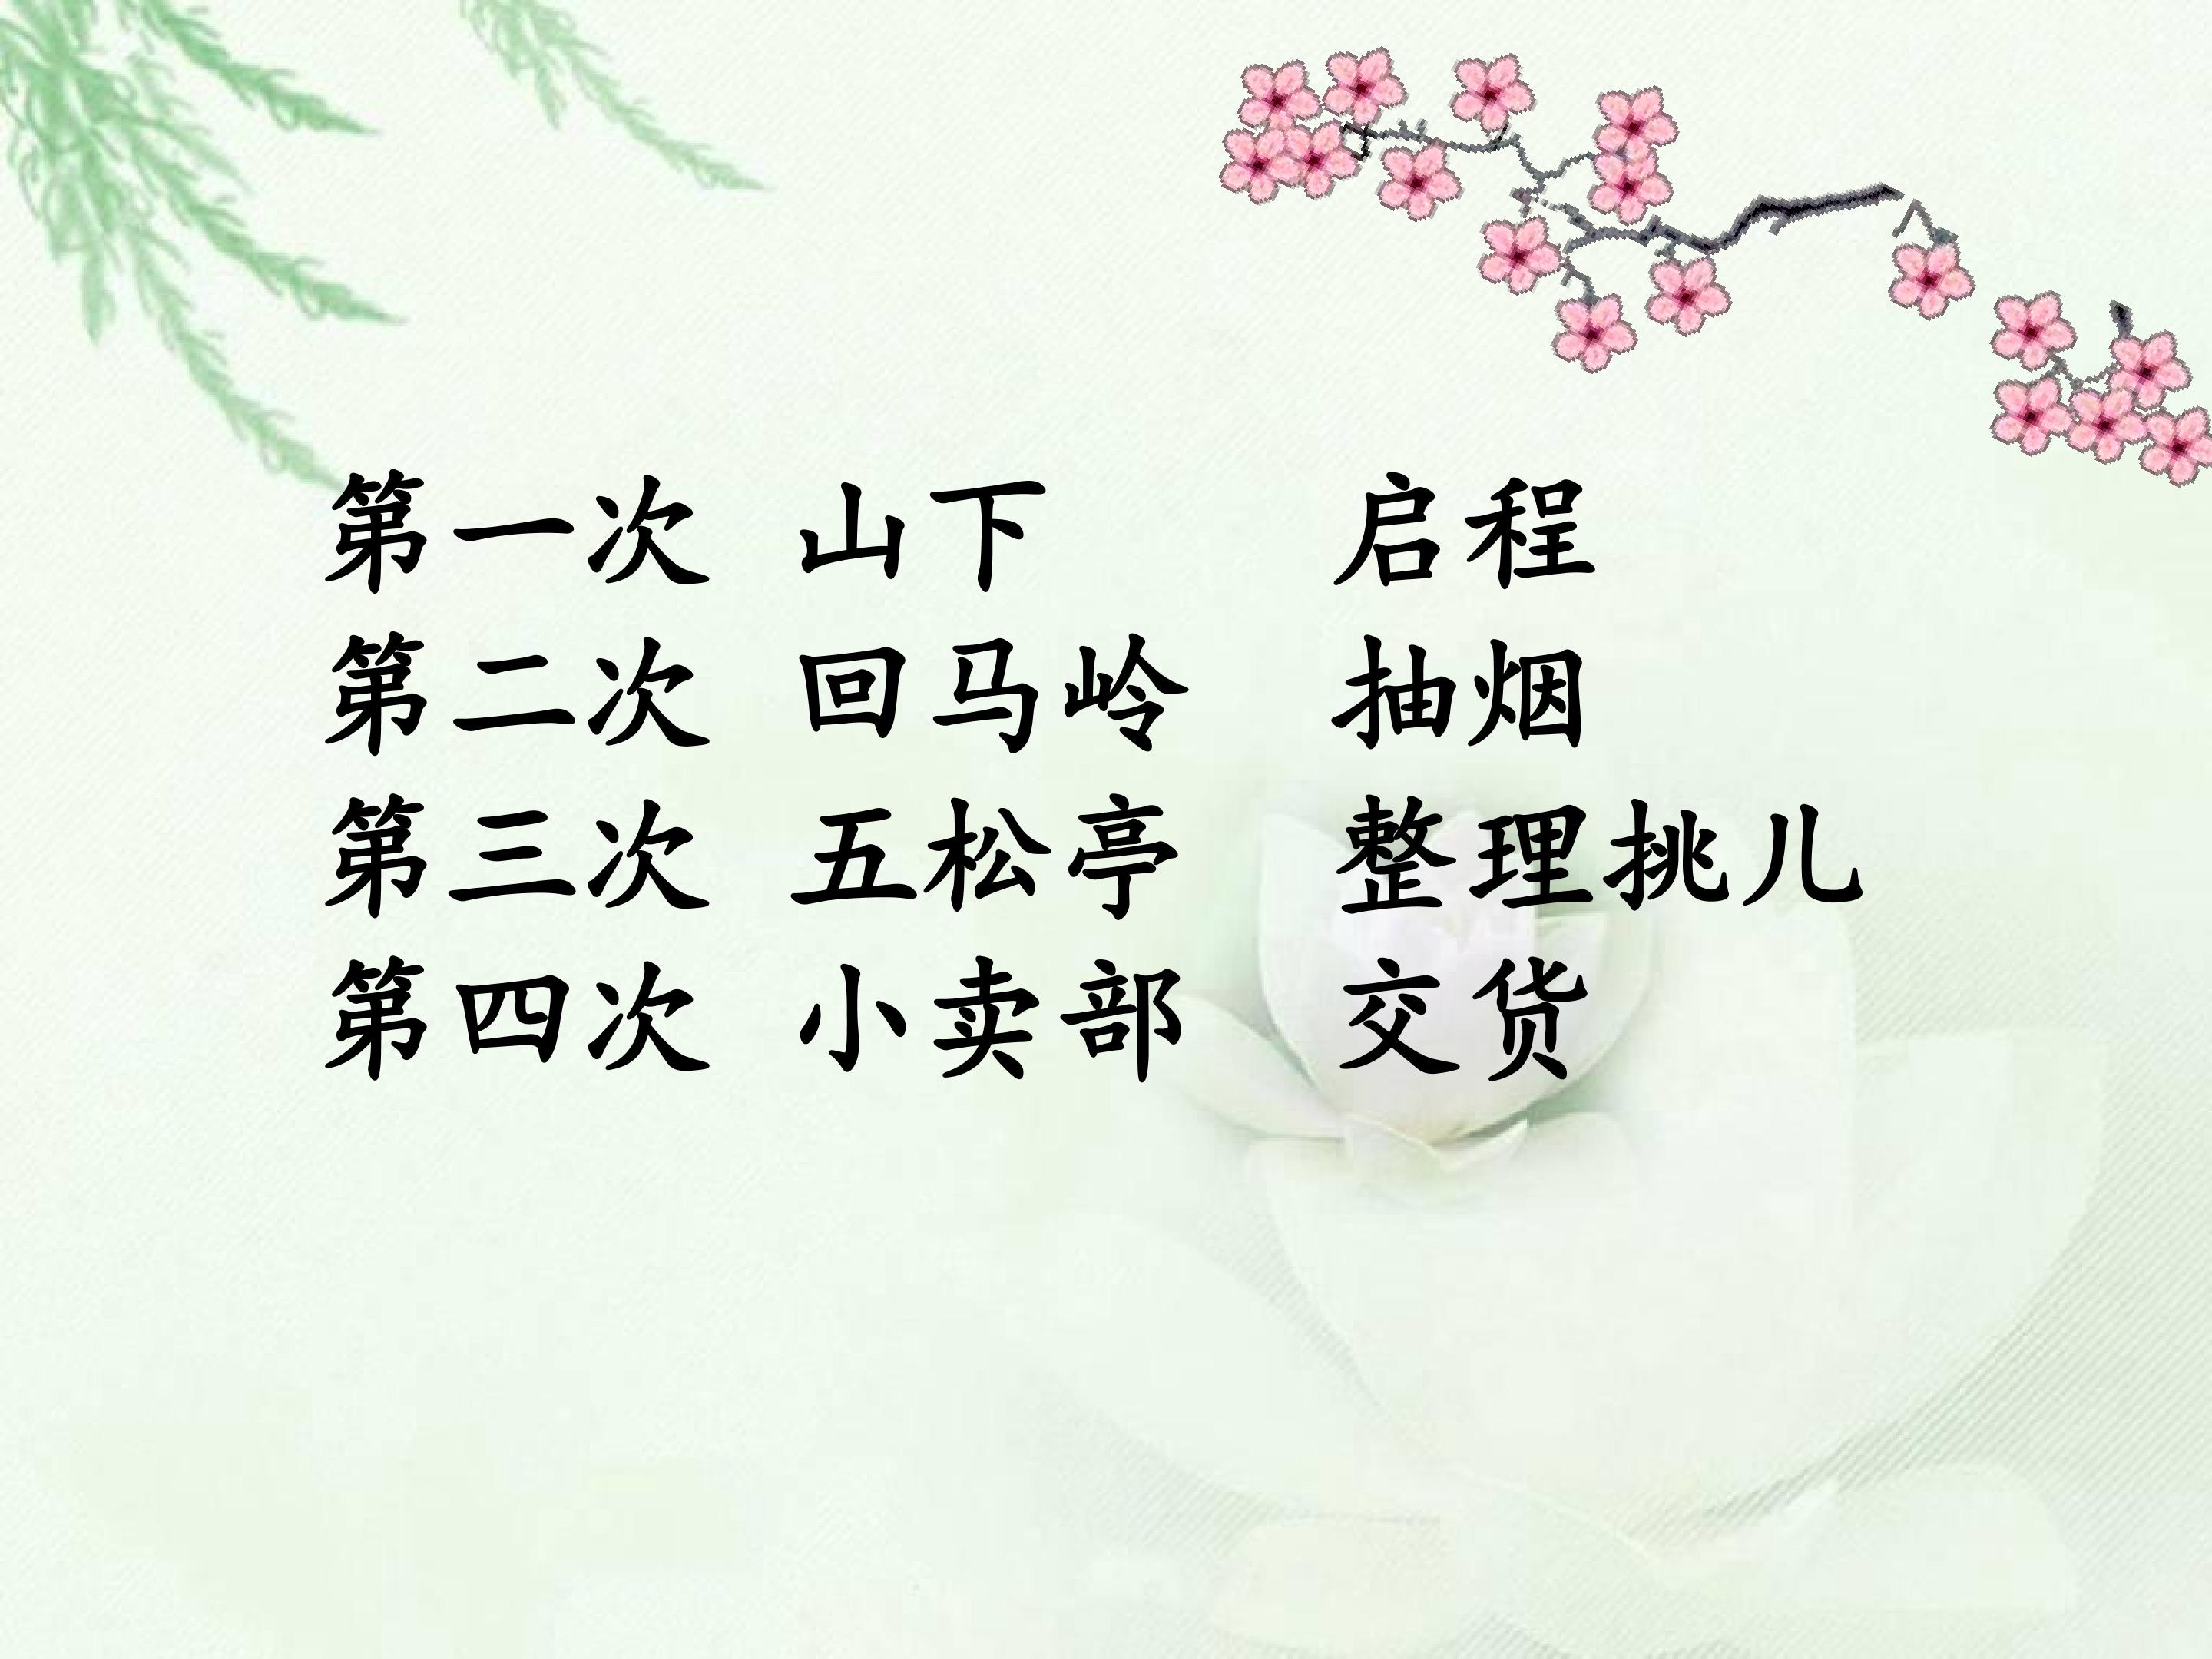 第一次 山下 启程
第二次 回马岭 抽烟
第三次 五松亭 整理挑儿
第四次 小卖部 交货